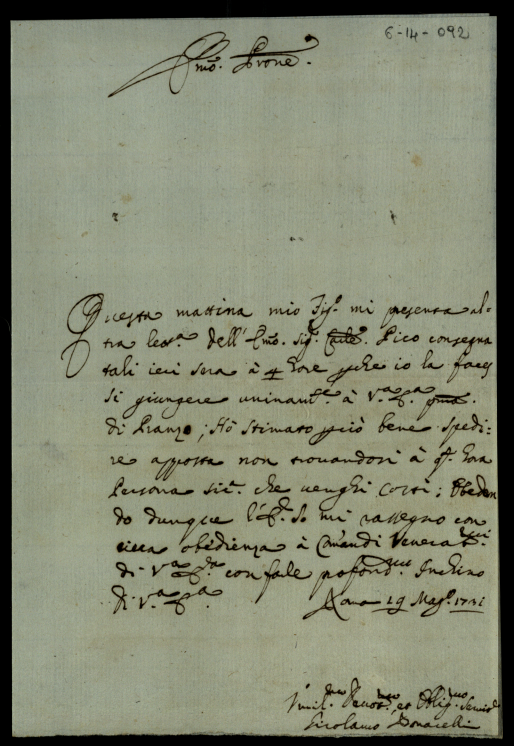 6-14-092
Emo. Prone.
Questa mattina mio Figº. mi presenta al=
tra lettª dell' Emo. Sigr. Carle. Pico consegna
tali ieri sera à 4 hore perche io la faces
si giungere à V.ª E.ª pma.
di Pranzo; Hò stimato perciò bene spedi=
re apposta non trovandosi à qt. hora
Persona sicª. che venghi costì; Obeden
do dunque mi rassegno con
obedienza à Comandi Venerat.mi
di V.ª E.ª con fale profond.mo Inchino
di V.ª E.ª
Roma 19 Magº. 1731
Umil.mo Devot.mo et Oblig.mo Servit.e
Girolamo Bonacelli